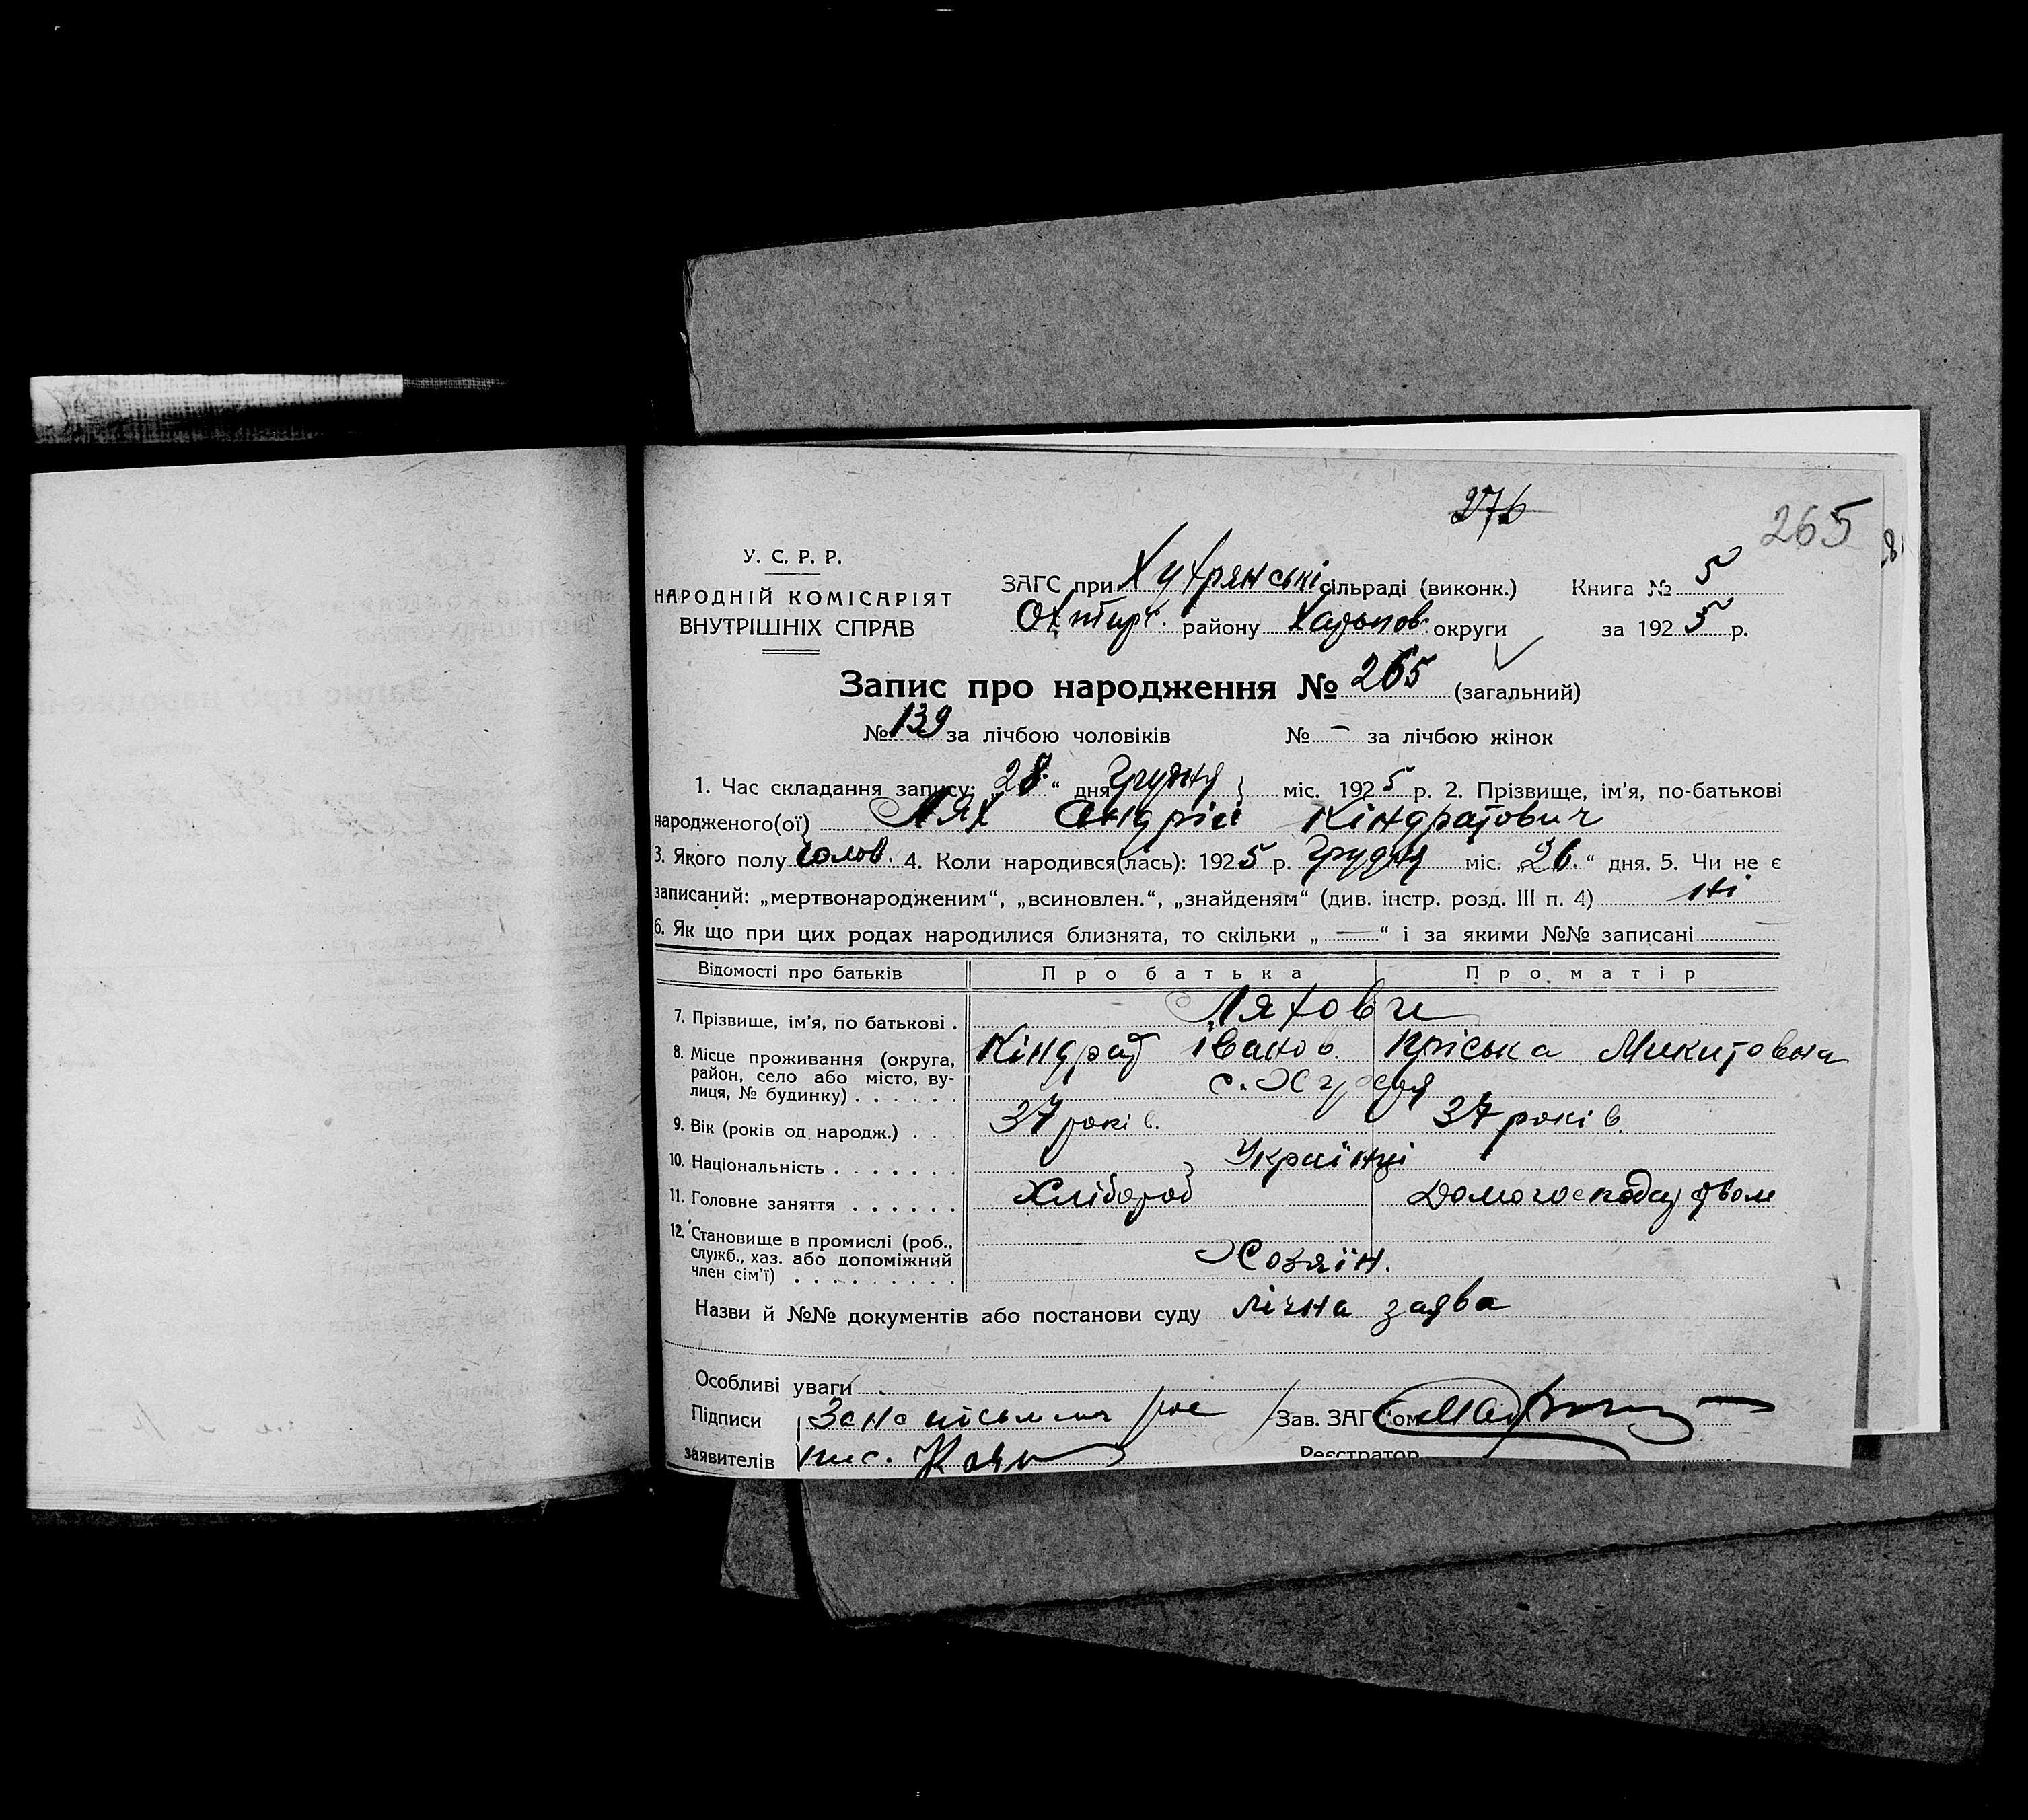 276
265
У. С. Р. Р.
НАРОДНІЙ КОМІСАРІЯТ
ВНУТРІШНІХ СПРАВ
ЗАГС при Хухрянські сільраді (виконк.) Книга № 5
Охтирс. району Харьков. округи за 1925 р.
Запис про народження № 265 (загальний)
№ 139 за лічбою чоловіків № — за лічбою жінок
1. Час складання запису: „28“ дня Грудня міс. 1925 р. 2. Прізвище, ім'я, по-батькові
народженого(ої) Лях Андрій Кіндратович
3. Якого полу чолов. 4. Коли народився(лась): 1925 р. Грудня міс. „26“ дня. 5. Чи не є
записаний: „мертвонародженим“, „всиновлен.“, „знайденям“ (див. інстр. розд. III п. 4) ні
6. Як що при цих родах народилися близнята, то скільки „—“ і за якими №№ записані
Відомості про батьків Про батька Про матір
7. Прізвище, ім'я, по батькові . Ляхови
Кіндрат Іванов. Пріська Микитовна
8. Місце проживання (округа,
район, село або місто, ву-
лиця, № будинку) . . . . . . с. Хухря
9. Вік (років од народж.) . . . 37 років. 37 років.
10. Національність . . . . . . . Українці
11. Головне заняття . . . . . . Хлібороб Домогосподарством
12. Становище в промислі (роб.,
служб., хаз. або допоміжний
член сім'ї) . . . . . . . . . Хозяїн.
Назви й №№ документів або постанови суду лічна заява
Особливі уваги
Підписи За неписьменно Зав. ЗАГС'ом
заявителів
Реєстратор